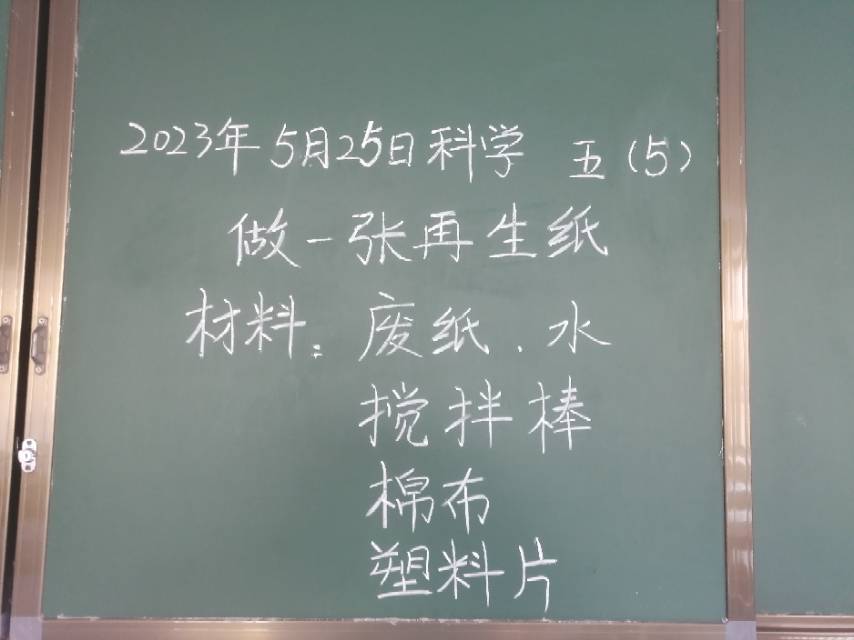 2023年5月25日科学 五(5)
做一张再生纸
材料:废纸、水
搅拌棒
棉布
塑料片